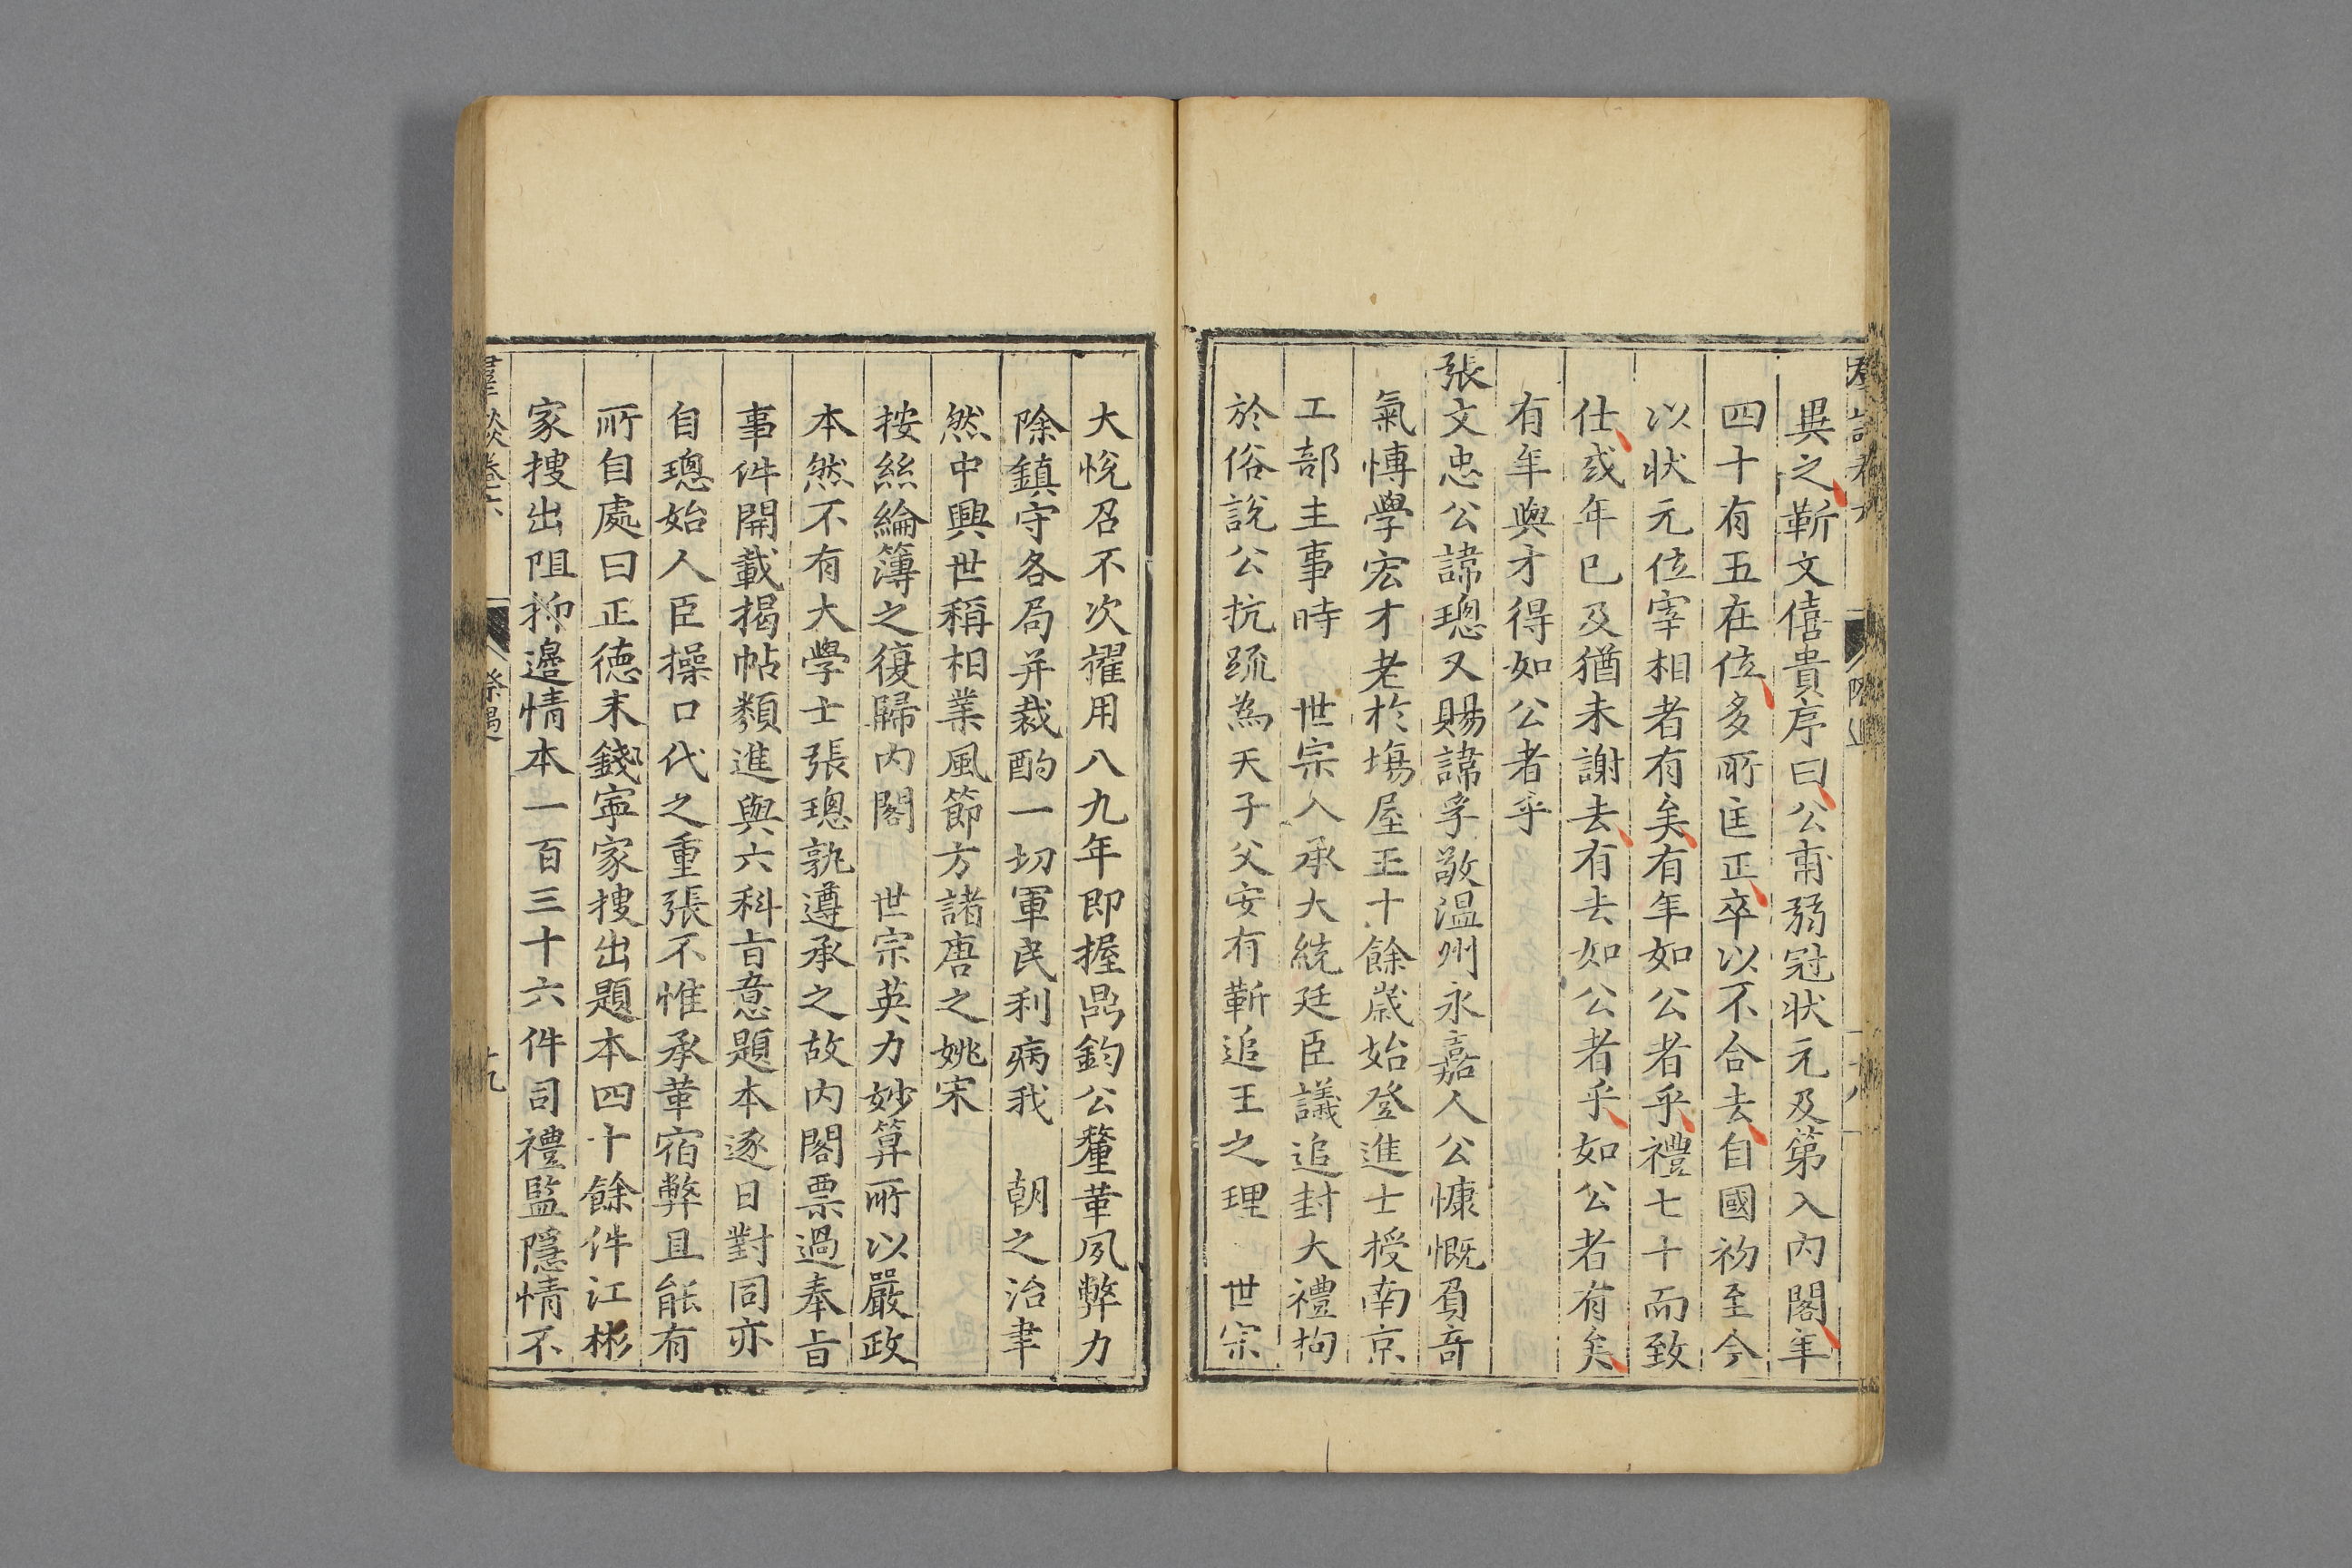 異之靳文僖貴序曰公甫弱冠狀元及第入內閣年
四十有五在位多所匡正卒以不合去自國初至今
以狀元位宰相者有矣有年如公者乎禮七十而致
仕或年已及猶未謝去有去如公者乎如公者有矣
有年與才得如公者乎
張文忠公諱璁又賜諱孚敬温州永嘉人公慷慨負奇
氣慱學宏才老於塲屋五十餘歲始登進士授南京
工部主事時 世宗入承大統廷臣議追封大禮拘
於俗說公抗䟽為天子父安有靳追王之理 世宗
大悅召不次擢用八九年即握鼎鈞公釐革夙弊力
除鎮守各局并裁酌一切軍民利病我 朝之治聿
然中興世稱相業風節方諸唐之姚宋
按絲綸簿之復歸內閣 世宗英力妙算所以嚴政
本然不有大學士張璁孰遵承之故內閣票過奉旨
事件開載揭帖類進與六科旨意題本逐日對同亦
自璁始人臣操口代之重張不惟承革宿弊且能有
所自處曰正德末錢寧家搜出題本四十餘件江彬
家搜出阻抑邊情本一百三十六件司禮監隱情不
羣談卷六 際遇 十九